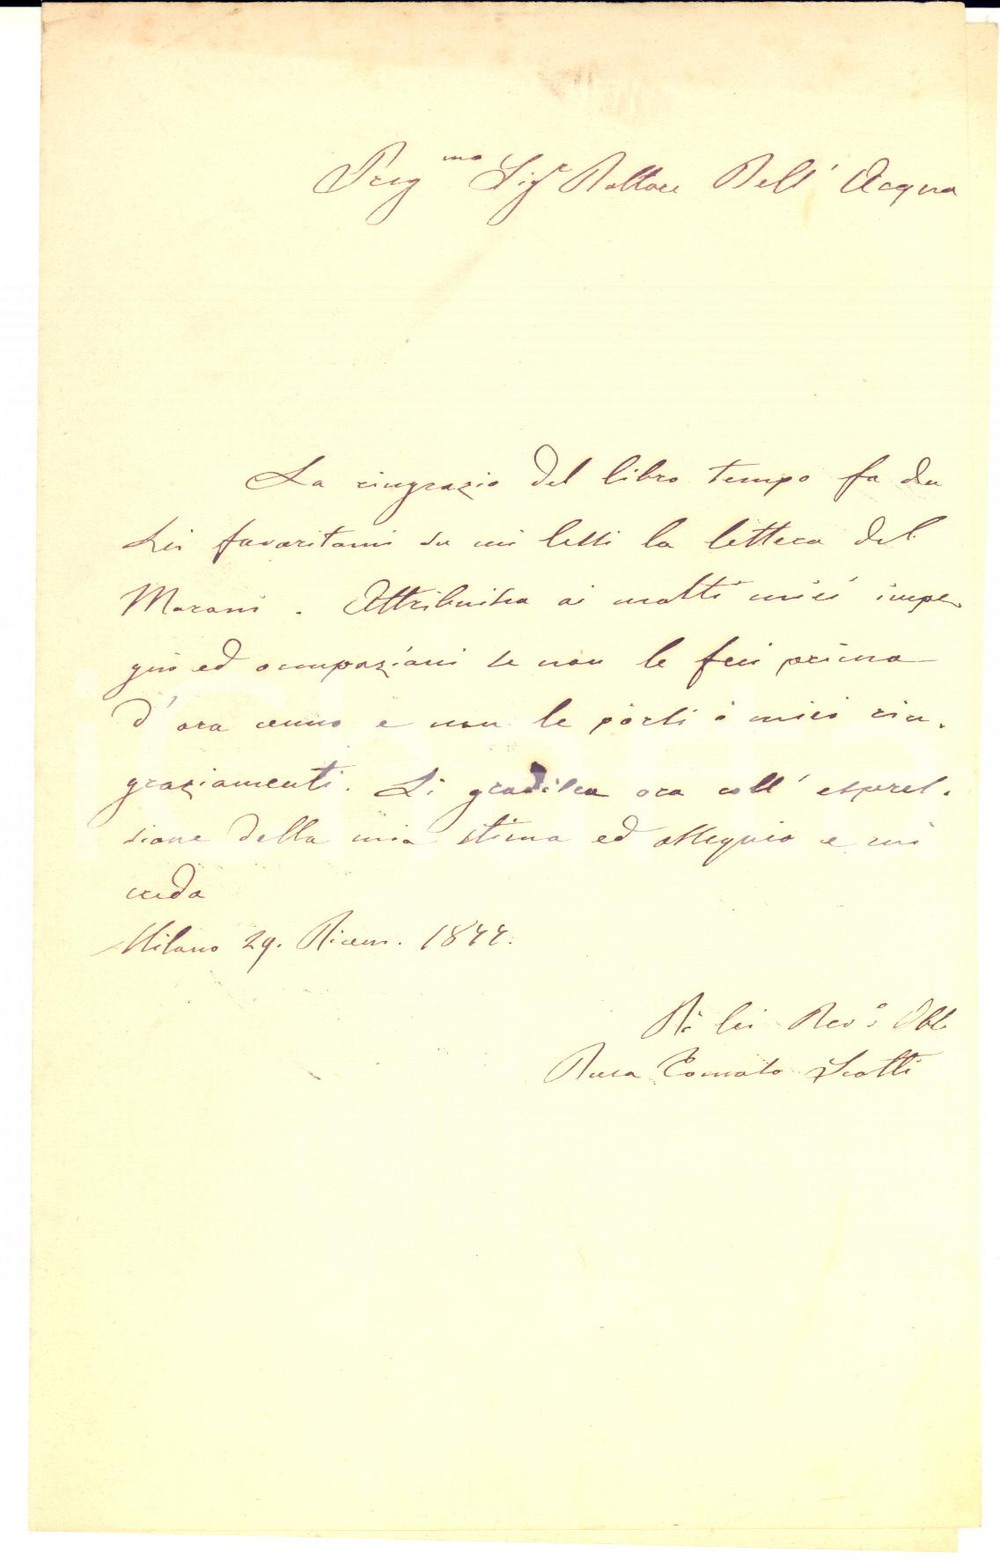 Preg.mo Sig.r Dottore Dell' Acqua
La ringrazio del libro tempo fa da
Lei favoritami su cui lessi la lettera del
Marani. Attribuisca ai molti miei impe-
gni ed occupazioni se non le feci prima
d'ora cenno e non le porsi i miei rin-
graziamenti. Li gradisca ora coll' espres-
sione della mia stima ed ossequio e mi
creda
Milano 29. Dicem. 1844.
Di lei Dev.o Obb.
Duca Tommaso Scotti